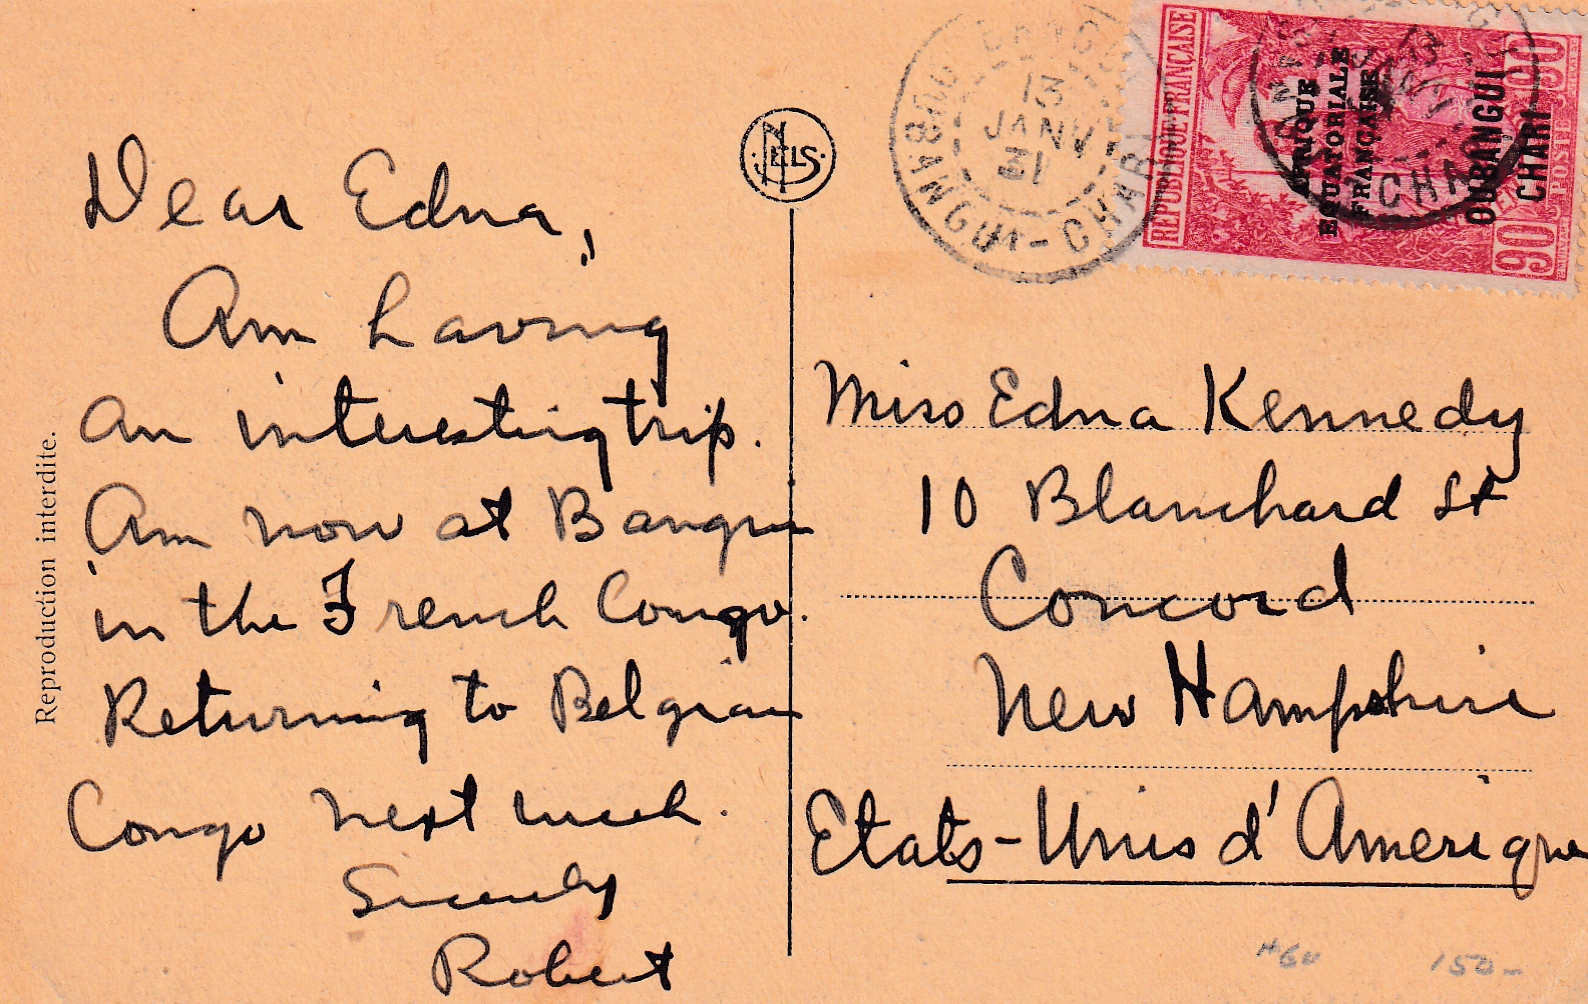 Dear Edna,
Am having
an interesting trip.
Am now at Bangui
in the French Congo.
Returning to Belgian
Congo next week.
Sincerely
Robert
Reproduction interdite.
NELS
13
JANV
31
BANGUI - CHARI
RÉPUBLIQUE FRANÇAISE
AFRIQUE
EQUATORIALE
FRANÇAISE
OUBANGUI
CHARI
90
90
POSTES
Miss Edna Kennedy
10 Blanchard St
Concord
New Hampshire
Etats-Unis d'Amerique
150-